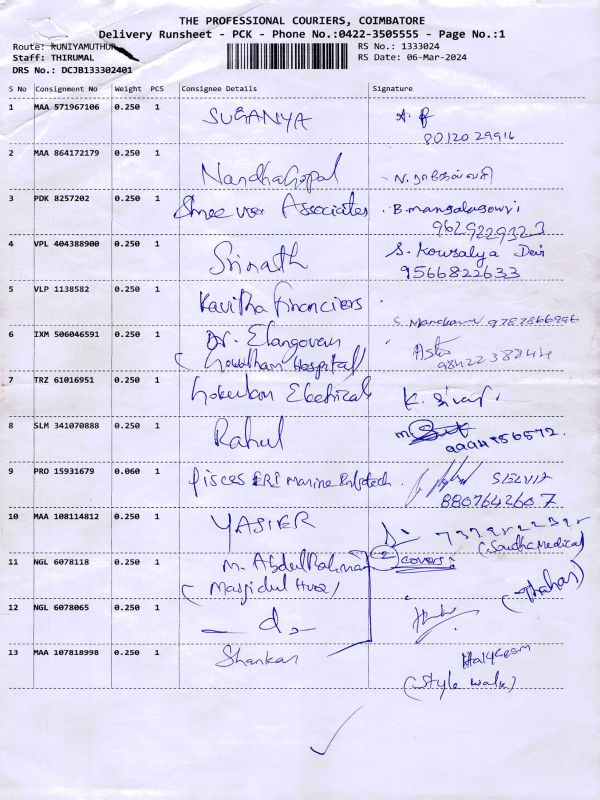 THE PROFESSIONAL COURIERS, COIMBATORE
Delivery Runsheet - PCK - Phone No.:0422-3505555 - Page No.:1
Route: KUNIYAMUTHUR
RS No.: 1333024
Staff: THIRUMAL
RS Date: 06-Mar-2024
DRS No.: DCJB133302401
S No Consignment No Weight PCS Consignee Details Signature
1 MAA 571967106 0.250 1 SUGANYA
8012029916
2 MAA 864172179 0.250 1 NandhaGopal N.
3 PDK 8257202 0.250 1 Shree Associates B.mangalagowri
9629229323
4 VPL 404388900 0.250 1 Srinath S. Kowsalya Devi
9566822633
5 VLP 1138582 0.250 1 Kavitha Financiers
S. 9787866996
6 IXM 506046591 0.250 1 Dr. Elangovan
(Gowtham Hospital) 9842238244
7 TRZ 61016951 0.250 1 Gokulam Electrical K.
8 SLM 341070888 0.250 1 Rahul
9 PRO 15931679 0.060 1 Pisces ERI Marine Infotech SELVIA
8807642607
10 MAA 108114812 0.250 1 YASIER
(Saudha Medical)
11 NGL 6078118 0.250 1 M. AbdulRahman 2 covers:
(Masjidul Huda) (Thahar)
12 NGL 6078065 0.250 1 — do —
13 MAA 107818998 0.250 1 Shankar
(Style walk)